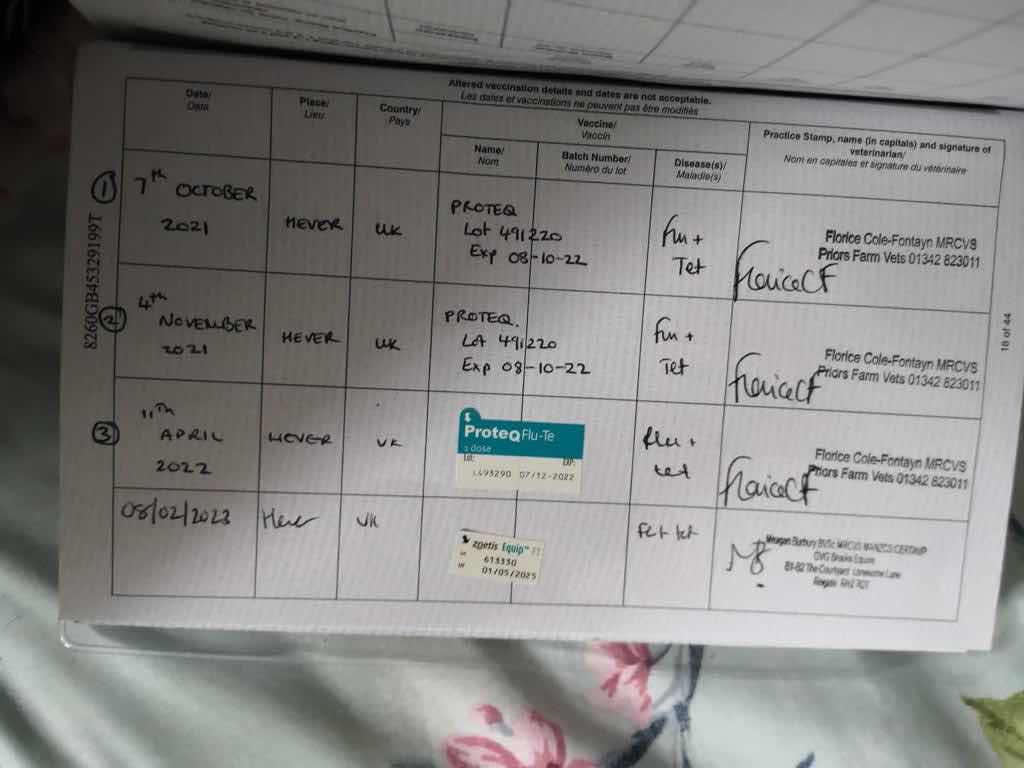 Altered vaccination details and dates are not acceptable.
Les dates et vaccinations ne peuvent pas être modifiés
Date/
Data
Place/
Lieu
Country/
Pays
Vaccine/
Vaccin
Name/
Nom
Batch Number/
Numéro du lot
Disease(s)/
Maladie(s)
Practice Stamp, name (in capitals) and signature of
veterinarian/
Nom en capitales et signature du vétérinaire
8260GB45329199T
18 of 44
1
7th OCTOBER
2021
HEVER
UK
PROTEQ
Lot 491220
Exp 08-10-22
Flu +
Tet
Florice Cole-Fontayn MRCVS
Priors Farm Vets 01342 823011
FloriceCF
2
4th
NOVEMBER
2021
HEVER
UK
PROTEQ.
Lot 491220
Exp 08-10-22
Flu +
Tet
Florice Cole-Fontayn MRCVS
Priors Farm Vets 01342 823011
FloriceCF
3
11Th
APRIL
2022
HEVER
UK
ProteqFlu-Te
1 dose
Lot:
EXP:
L493290 07/12-2022
flu +
tet
Florice Cole-Fontayn MRCVS
Priors Farm Vets 01342 823011
FloriceCF
08/02/2023
Hever
UK
zoetis Equip™ FT
613330
01/05/2025
tet
MB
Burbury BVSc MRCVS
Brooks Equine
B1-B2 The Courtyard Lonesome Lane
Reigate RH2 7QT